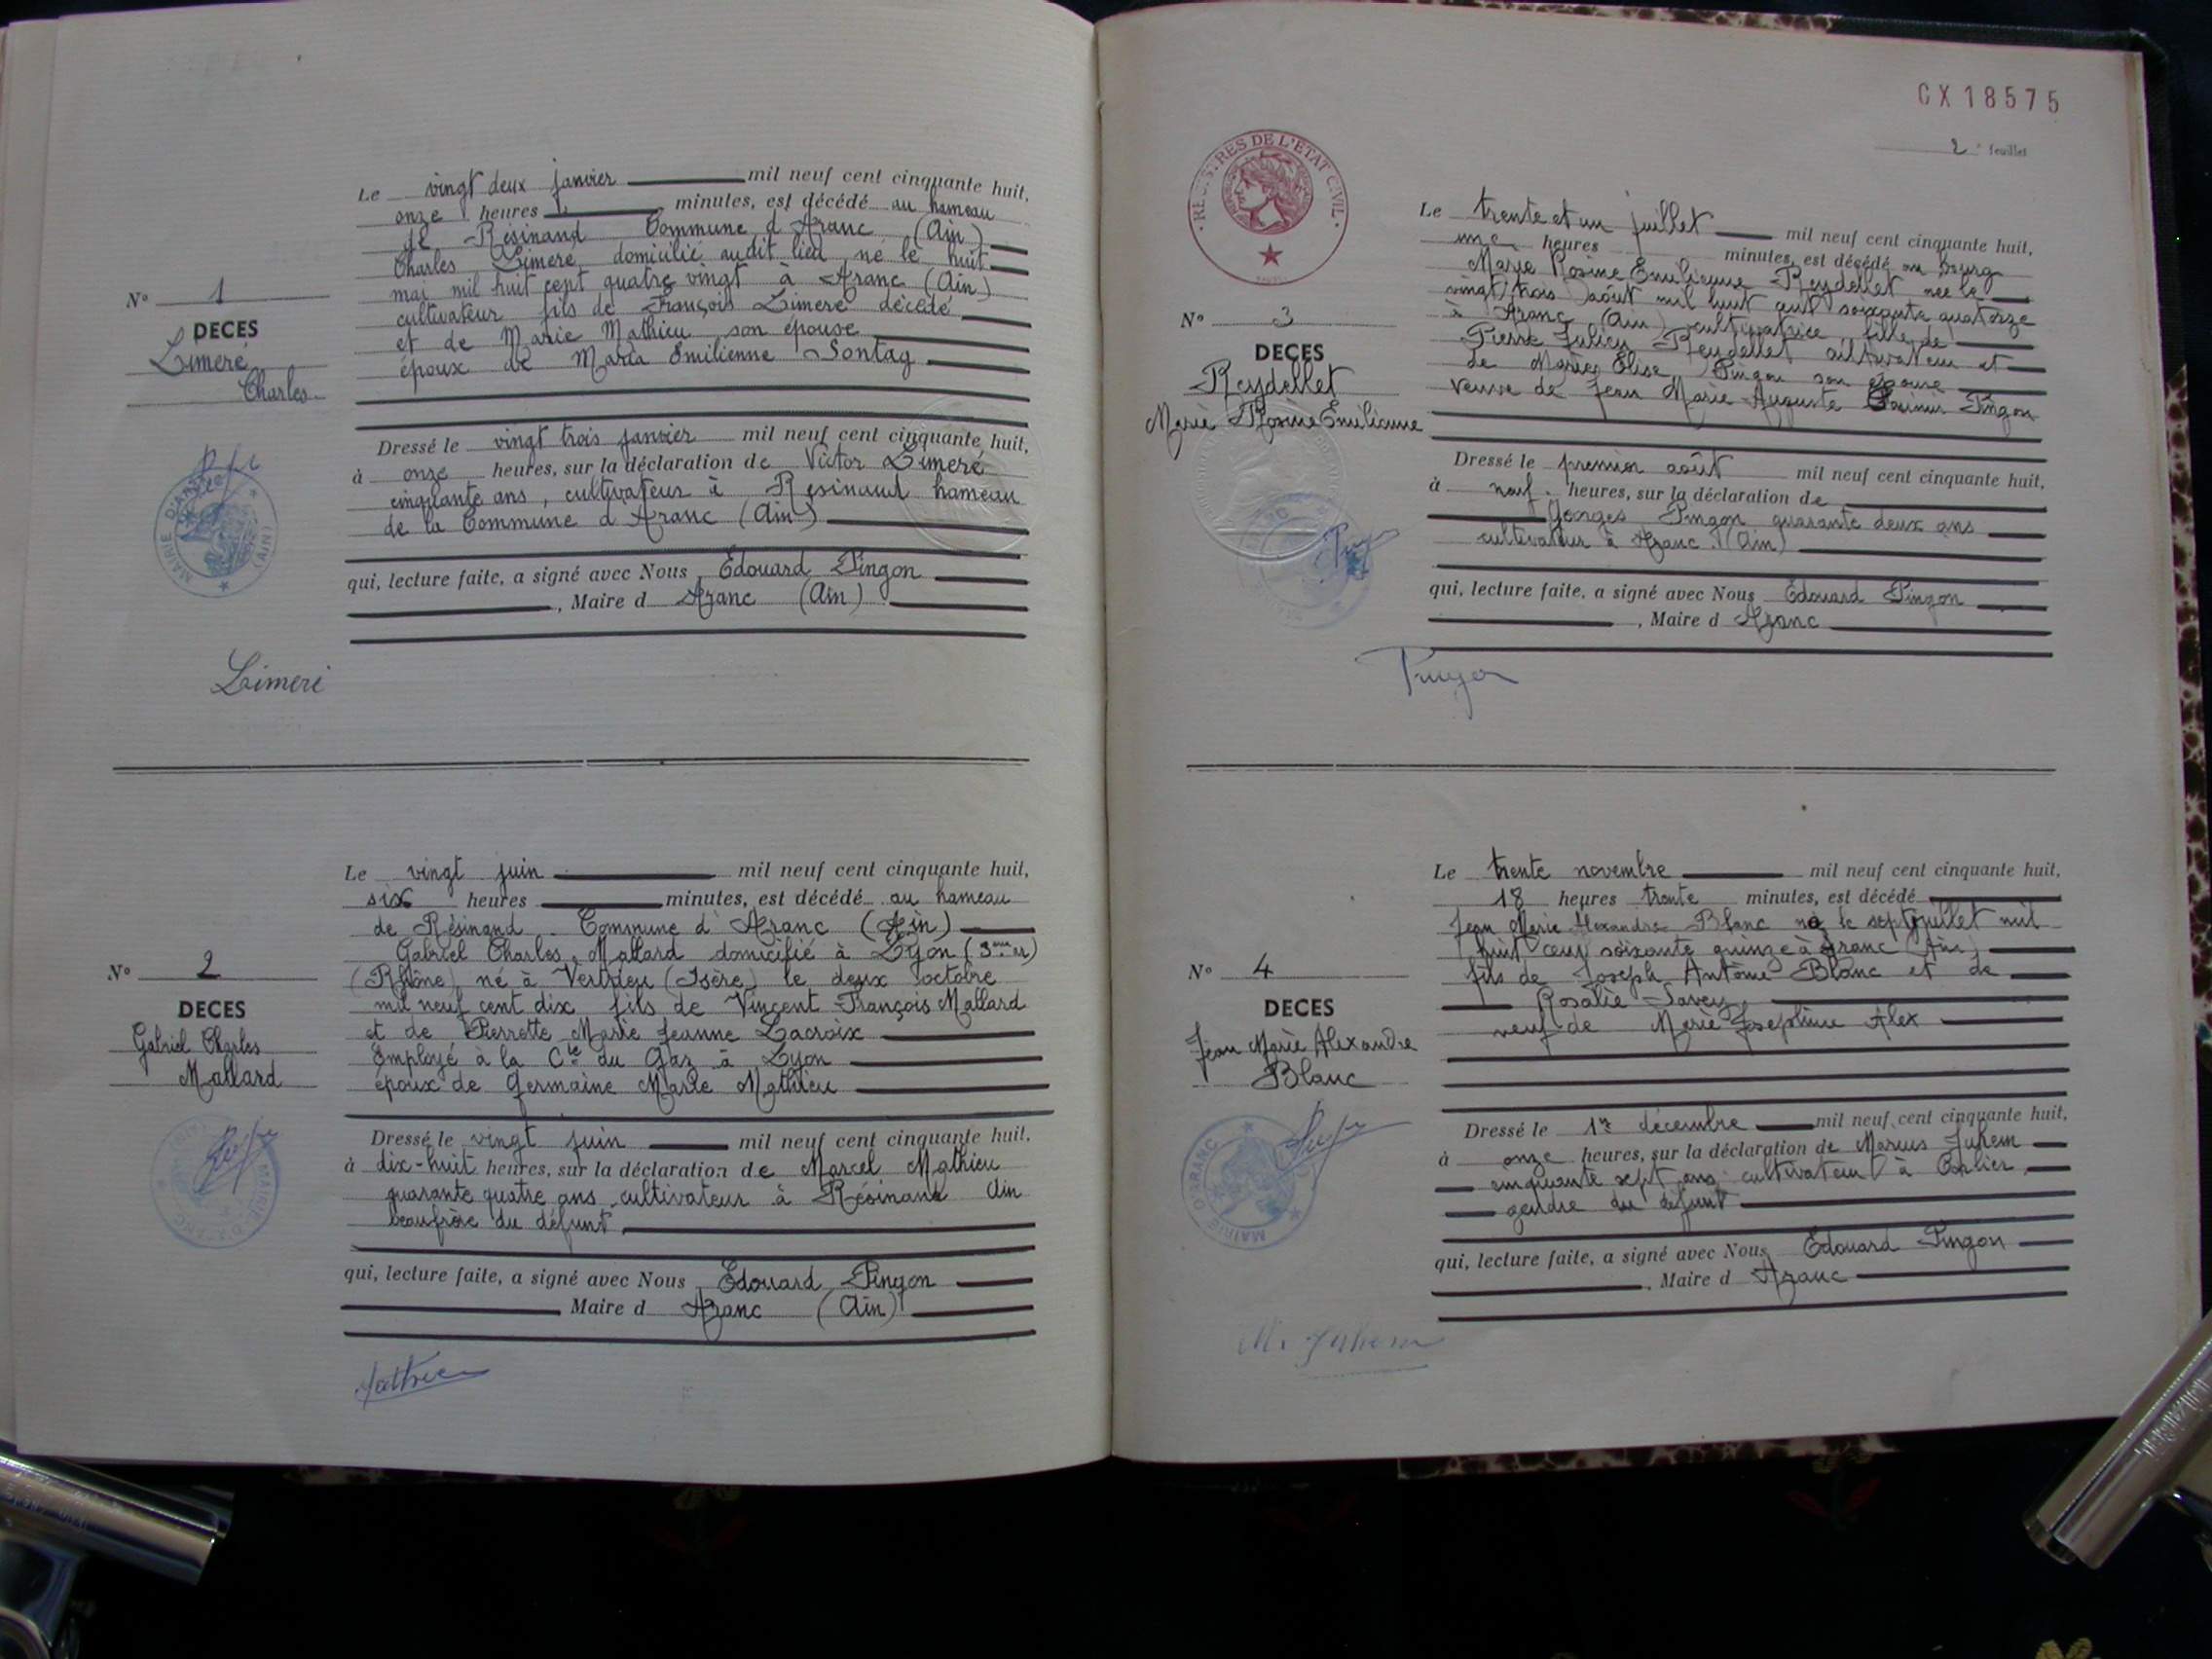 Le vingt deux janvier mil neuf cent cinquante huit,
onze heures minutes, est décédé au hameau
de Résinand Commune d'Aranc (Ain)
Charles Limeré domicilié audit lieu, né le huit
mai mil huit cept quatre vingt à Aranc (Ain)
cultivateur fils de François Limeré décédé
et de Marie Mathieu son épouse
époux de Maria Emilienne Sontag
N° 1
DECES
Limeré
Charles
Dressé le vingt trois janvier mil neuf cent cinquante huit,
à onze heures, sur la déclaration de Victor Limeré
cinquante ans, cultivateur à Résinand hameau
de la Commune d'Aranc (Ain)
MAIRIE D'ARANC (AIN)
qui, lecture faite, a signé avec Nous Edouard Pingon
, Maire d Aranc (Ain)
Limeré
Le vingt juin mil neuf cent cinquante huit,
six heures minutes, est décédé au hameau
de Résinand Commune d'Aranc (Ain)
Gabriel Charles Mallard domicilié à Lyon (3ème ar)
(Rhône) né à Vertrieu (Isère) le deux octobre
mil neuf cent dix fils de Vincent François Mallard
et de Pierrette Marie Jeanne Lacroix
Employé à la Cie du Gaz à Lyon
époux de Germaine Marie Mathieu
N° 2
DECES
Gabriel Charles
Mallard
Dressé le vingt juin mil neuf cent cinquante huit,
à dix-huit heures, sur la déclaration de Marcel Mathieu
quarante quatre ans, cultivateur à Résinand Ain
beaufrère du défunt
qui, lecture faite, a signé avec Nous Edouard Pingon
Maire d Aranc (Ain)
Mathieu
CX 18575
2e feuillet
REGISTRES DE L'ETAT CIVIL
Le trente et un juillet mil neuf cent cinquante huit,
une heures minutes, est décédé au bourg
Marie Rosine Emilienne Reydellet née le
vingt trois août mil huit cent soixante quatorze
à Aranc (Ain) cultivatrice, fille de
Pierre Julien Reydellet cultivateur et
de Marie Elise Pingon son épouse
veuve de Jean Marie Auguste Pingon
N° 3
DECES
Reydellet
Marie Rosine Emilienne
Dressé le premier août mil neuf cent cinquante huit,
à neuf heures, sur la déclaration de
Georges Pingon quarante deux ans
cultivateur à Aranc (Ain)
qui, lecture faite, a signé avec Nous Edouard Pingon
, Maire d Aranc
Pingon
Le trente novembre mil neuf cent cinquante huit,
18 heures trente minutes, est décédé
Jean Marie Alexandre Blanc né le sept juillet mil
huit cent soixante quinze à Aranc (Ain)
fils de Joseph Antoine Blanc et de
Rosalie Savey
veuf de Marie Joséphine Alex
N° 4
DECES
Jean Marie Alexandre
Blanc
Dressé le 1er décembre mil neuf cent cinquante huit,
à onze heures, sur la déclaration de Marius Juhem
cinquante sept ans cultivateur à Corlier
gendre du défunt
MAIRIE D'ARANC
qui, lecture faite, a signé avec Nous Edouard Pingon
, Maire d Aranc
M. Juhem